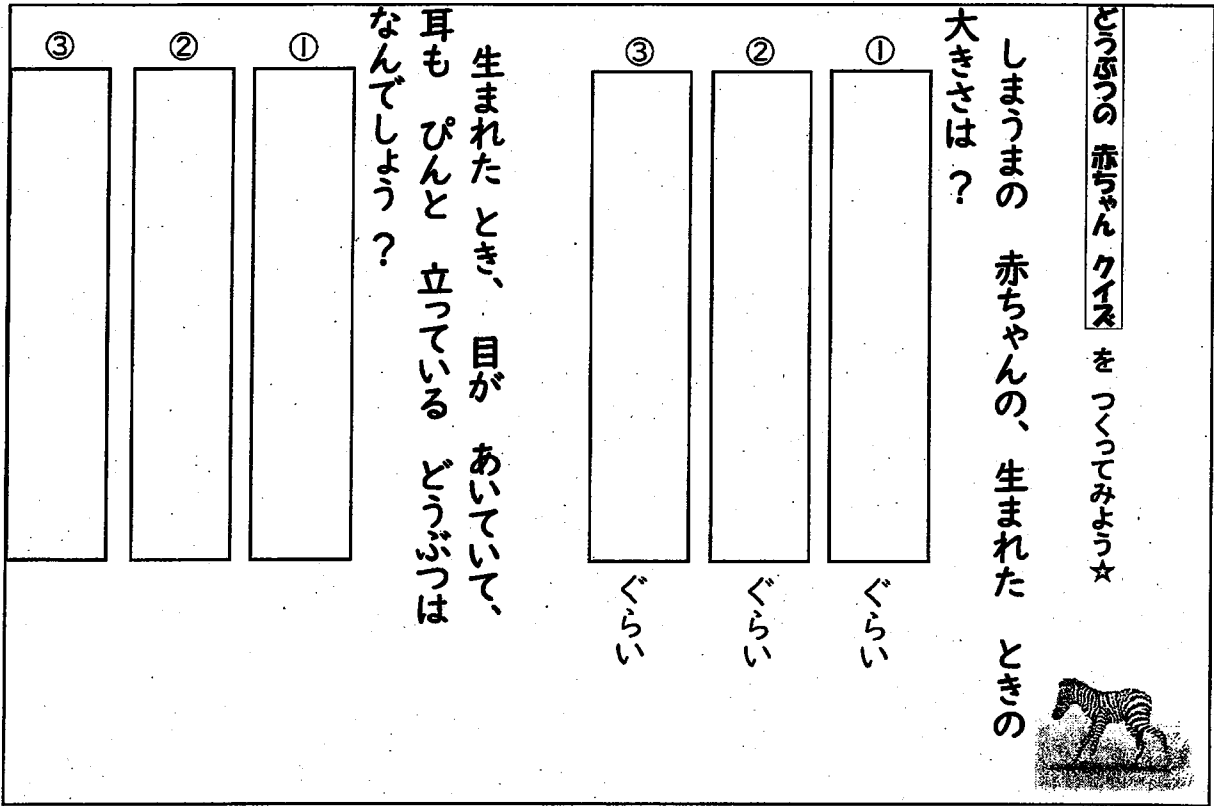 どうぶつの 赤ちゃん クイズ を つくってみよう☆
しまうまの 赤ちゃんの、生まれた ときの
大きさは ?
① ぐらい
② ぐらい
③ ぐらい
生まれた とき、目が あいていて、
耳も ぴんと 立っている どうぶつは
なんでしょう ?
①
②
③